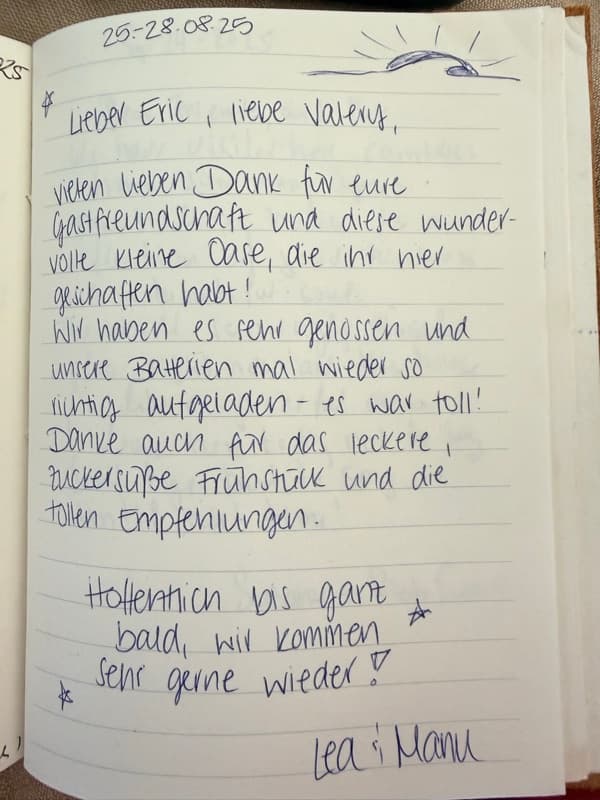 25.-28.08.25
Lieber Eric, liebe Valery,
vielen lieben Dank für eure
Gastfreundschaft und diese wunder-
volle kleine Oase, die ihr hier
geschaffen habt!
Wir haben es sehr genossen und
unsere Batterien mal wieder so
richtig aufgeladen - es war toll!
Danke auch für das leckere,
zuckersüße Frühstück und die
tollen Empfehlungen.
Hoffentlich bis ganz
bald, wir kommen
sehr gerne wieder!
Lea & Manu